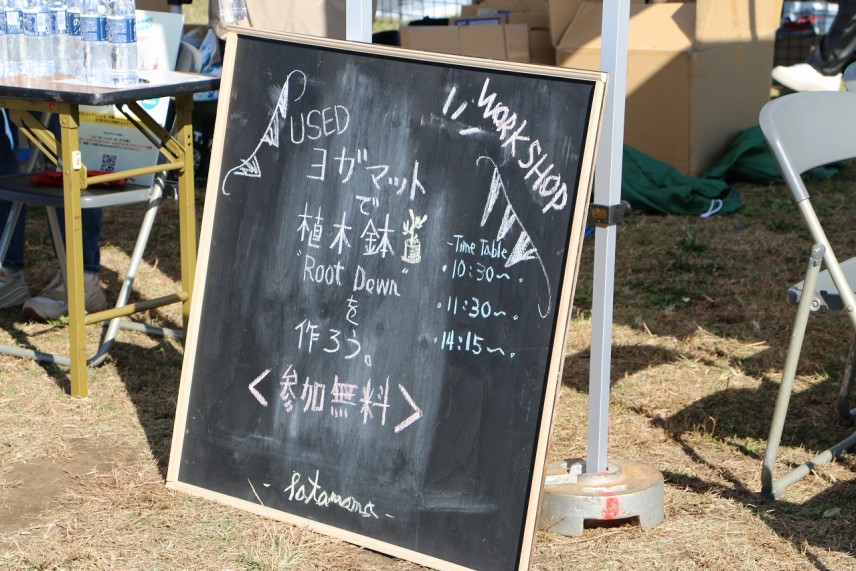 USED
ヨガマット
で
植木鉢
"Root Down"
を
作ろう。
<参加無料>
WORKSHOP
-Time Table
・10:30〜。
・11:30〜。
・14:15〜。